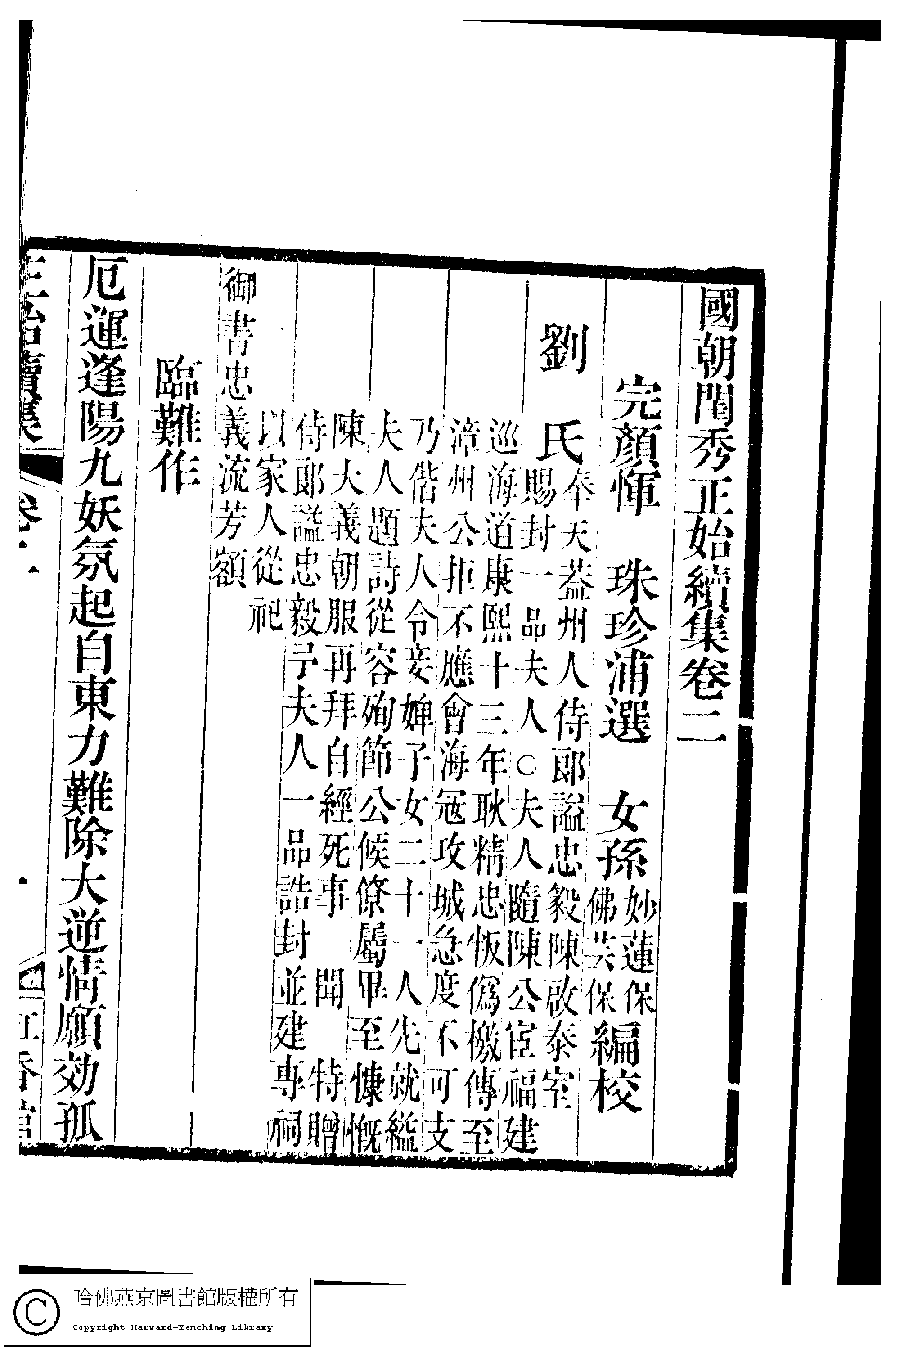 國朝閨秀正始續集卷二
完顏惲 珠珍浦選 女孫 妙蓮保 佛芸保 編校
劉 氏
奉天蓋州人侍郎謚忠毅陳啟泰室
賜封一品夫人○夫人隨陳公宦福建
巡海道康熙十三年耿精忠叛僞檄傳至
漳州公拒不應會海冦攻城急度不可支
乃偕夫人令妾婢子女二十一人先就縊
夫人題詩從容殉節公候僚屬畢至慷慨
陳大義朝服再拜自經死事 聞 特贈
侍郎謚忠毅予夫人一品誥封並建專祠
以家人從祀
御書忠義流芳額
臨難作
厄運逢陽九妖氛起自東力難除大逆情願効孤
正始續集 卷二 一 紅香館
哈佛燕京圖書館版權所有
Copyright Harvard-Yenching Library